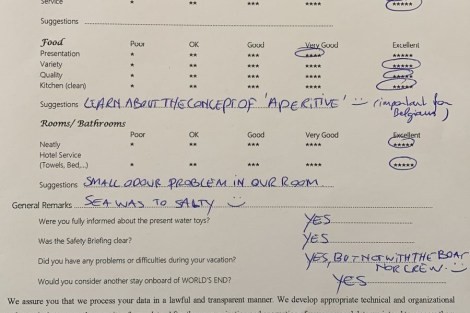 Service * ** *** **** *****
Suggestions
Food Poor OK Good Very Good Excellent
Presentation * ** *** **** *****
Variety * ** *** **** *****
Quality * ** *** **** *****
Kitchen (clean) * ** *** **** *****
Suggestions LEARN ABOUT THE CONCEPT OF 'APERITIVE' :-) (important for
Belgians)
Rooms/ Bathrooms
Poor OK Good Very Good Excellent
Neatly * ** *** **** *****
Hotel Service
(Towels, Bed,..) * ** *** **** *****
Suggestions SMALL ODOUR PROBLEM IN OUR ROOM
General Remarks SEA WAS TO SALTY :-)
Were you fully informed about the present water toys? YES
Was the Safety Briefing clear? YES
Did you have any problems or difficulties during your vacation? YES, BUT NOT WITH THE BOAT
NOR CREW :-)
Would you consider another stay onboard of WORLD'S END? YES
We assure you that we process your data in a lawful and transparent manner. We develop appropriate technical and organizational